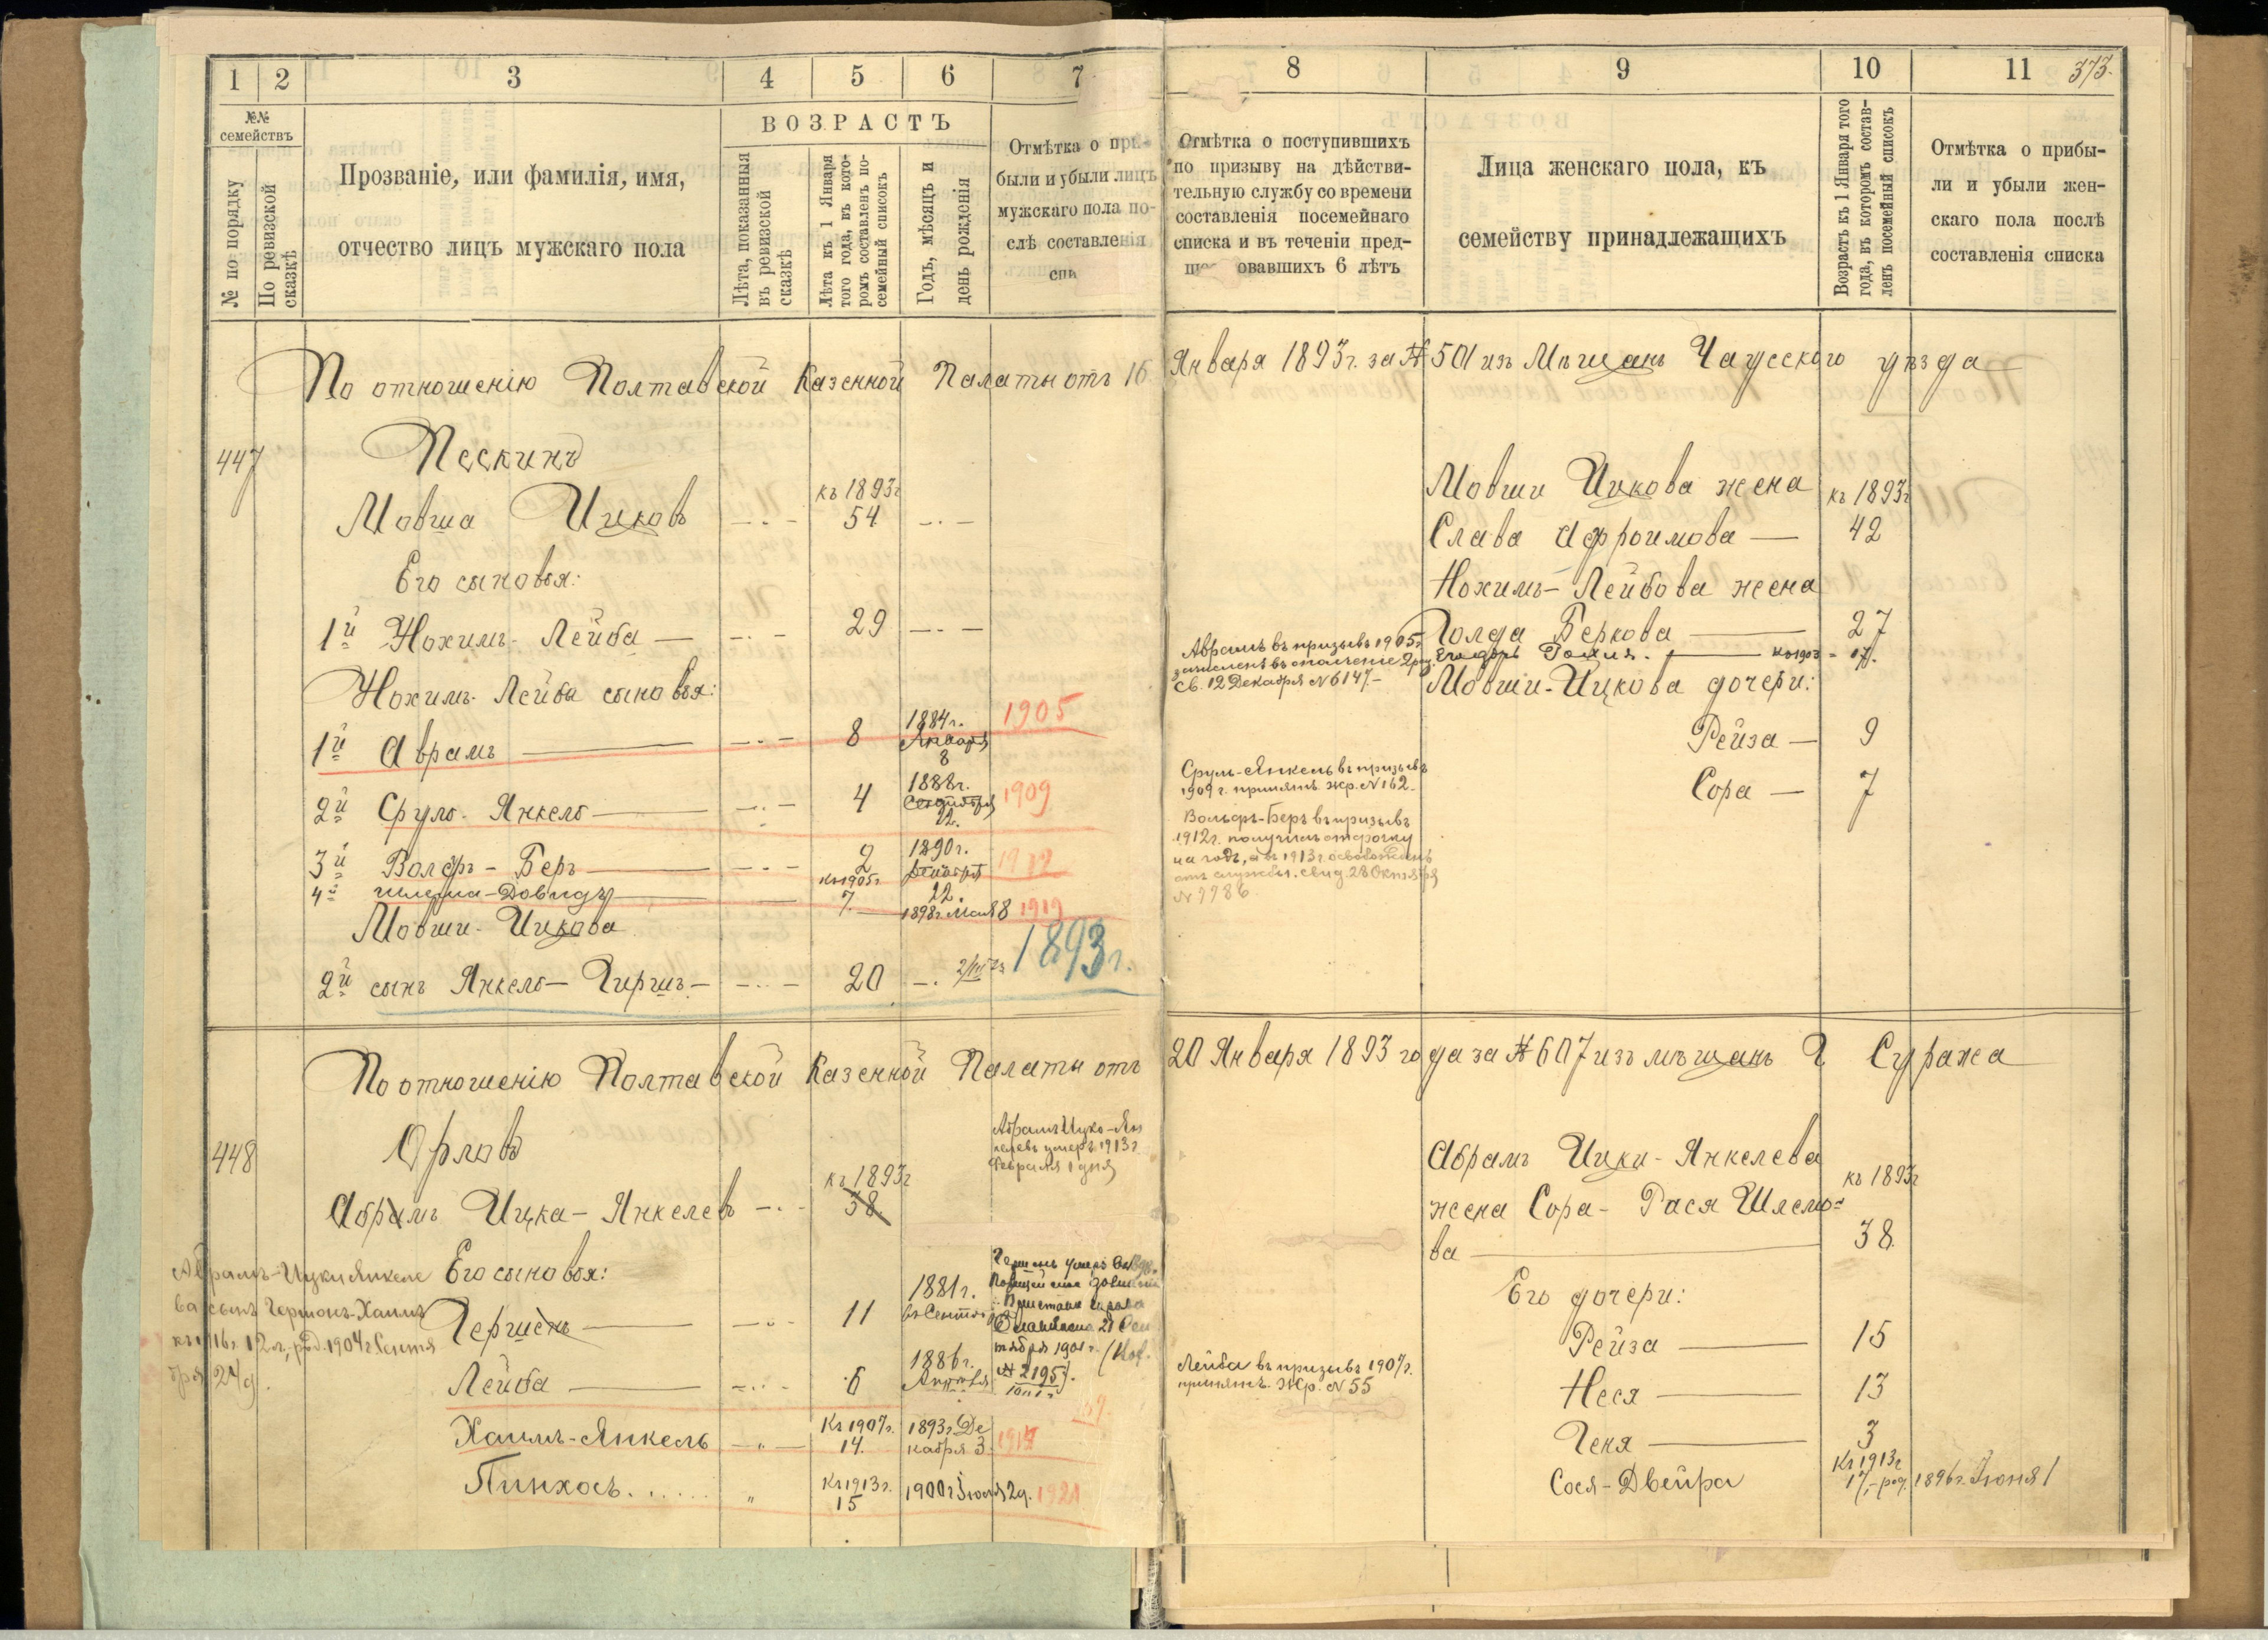 1 2 3 4 5 6 7
№№ семействъ
№ по порядку
По ревизской сказкѣ
Прозваніе, или фамилія, имя,
отчество лицъ мужскаго пола
ВОЗРАСТЪ
Лѣта, показанныя
въ ревизской
сказкѣ
Лѣта къ 1 Января
того года, въ кото-
ромъ составленъ по-
семейный списокъ
Годъ, мѣсяцъ и
день рожденія
Отмѣтка о при-
были и убыли лицъ
мужскаго пола по-
слѣ составленія
спи
8 9 10 11 373.
Отмѣтка о поступившихъ
по призыву на дѣйстви-
тельную службу со времени
составленія посемейнаго
списка и въ теченіи пред-
ше овавшихъ 6 лѣтъ
Лица женскаго пола, къ
семейству принадлежащихъ
Возрастъ къ 1 Января того
года, въ которомъ состав-
ленъ посемейный списокъ
Отмѣтка о прибы-
ли и убыли жен-
скаго пола послѣ
составленія списка
По отношенію Полтавской Казенной Палаты отъ 16 Января 1893 г. за № 501 изъ Мѣщанъ Чаусского уѣзда
447 Пескинъ
къ 1893 г
Мовша Ицковъ 54
Его сыновья:
1й Нохимъ-Лейба — 29
Нохимъ-Лейба сыновья:
1й Аврамъ 8 1884 г. Января 8 1905
2й Сруль-Янкель 4 1888 г. Сентября 22. 1909
3й Вольфъ-Беръ 2 1890 г. 22. 1912
4й Шлема-Довидъ къ 1905 г. 7. 1898 г. Мая 8 1919
Мовши-Ицкова
2й сынъ Янкель-Гиршъ 20 1893 г.
Аврамъ въ призывъ 1905 г.
зачисленъ въ ополченіе 2 раз.
Св. 12 Декабря № 6147.-
Сруль-Янкель въ призывъ
1909 г. принятъ. Жр. № 162.
Вольфъ-Беръ въ призывъ
1912 г. получилъ отсрочку
на годъ, а въ 1913 г. освобожденъ
отъ службы. Свид. 28 Октября
Мовши Ицкова жена къ 1893 г
Слава Афроимова — 42
Нохимъ-Лейбова жена
Голда Беркова 27
Его дочь 17.
Мовши-Ицкова дочери:
Рейза — 9
Сора — 7
По отношенію Полтавской Казенной Палаты отъ 20 Января 1893 года за № 607 изъ мѣщанъ Г Суража
448 Орловъ
къ 1893 г
Абрамъ Ицка-Янкелев 38.
Абрамъ Ицко-Ян
келевъ умеръ 1913 г
Февраля 1 дня
Его сыновья:
Абрамъ-Ицки Янкеле
ва сынъ Гершонъ-Хаимъ
къ 1916 г 12 л., род. 1904 г Сентя
бря 24 д.
Гершенъ 11 1881 г. въ Сентяб
тября 1901 г.
№ 2195).
Лейба 6 1886 г. Апрѣля
Хаимъ-Янкель Къ 1907 г. 14. 1893 г. Де
кабря 3.
Пинхосъ Къ 1913 г. 15 1900 г. 2 д. 1921
Лейба въ призывъ 1907 г.
принятъ. Жр. № 55
Абрамъ Ицки-Янкелева къ 1893 г
жена Сора-Рася Шлемо=
ва 38.
Его дочери:
Рейза 15
Неся 13
Геня 3
Сося-Двейра Къ 1913 г 17, род. 1896 г. Іюня 1